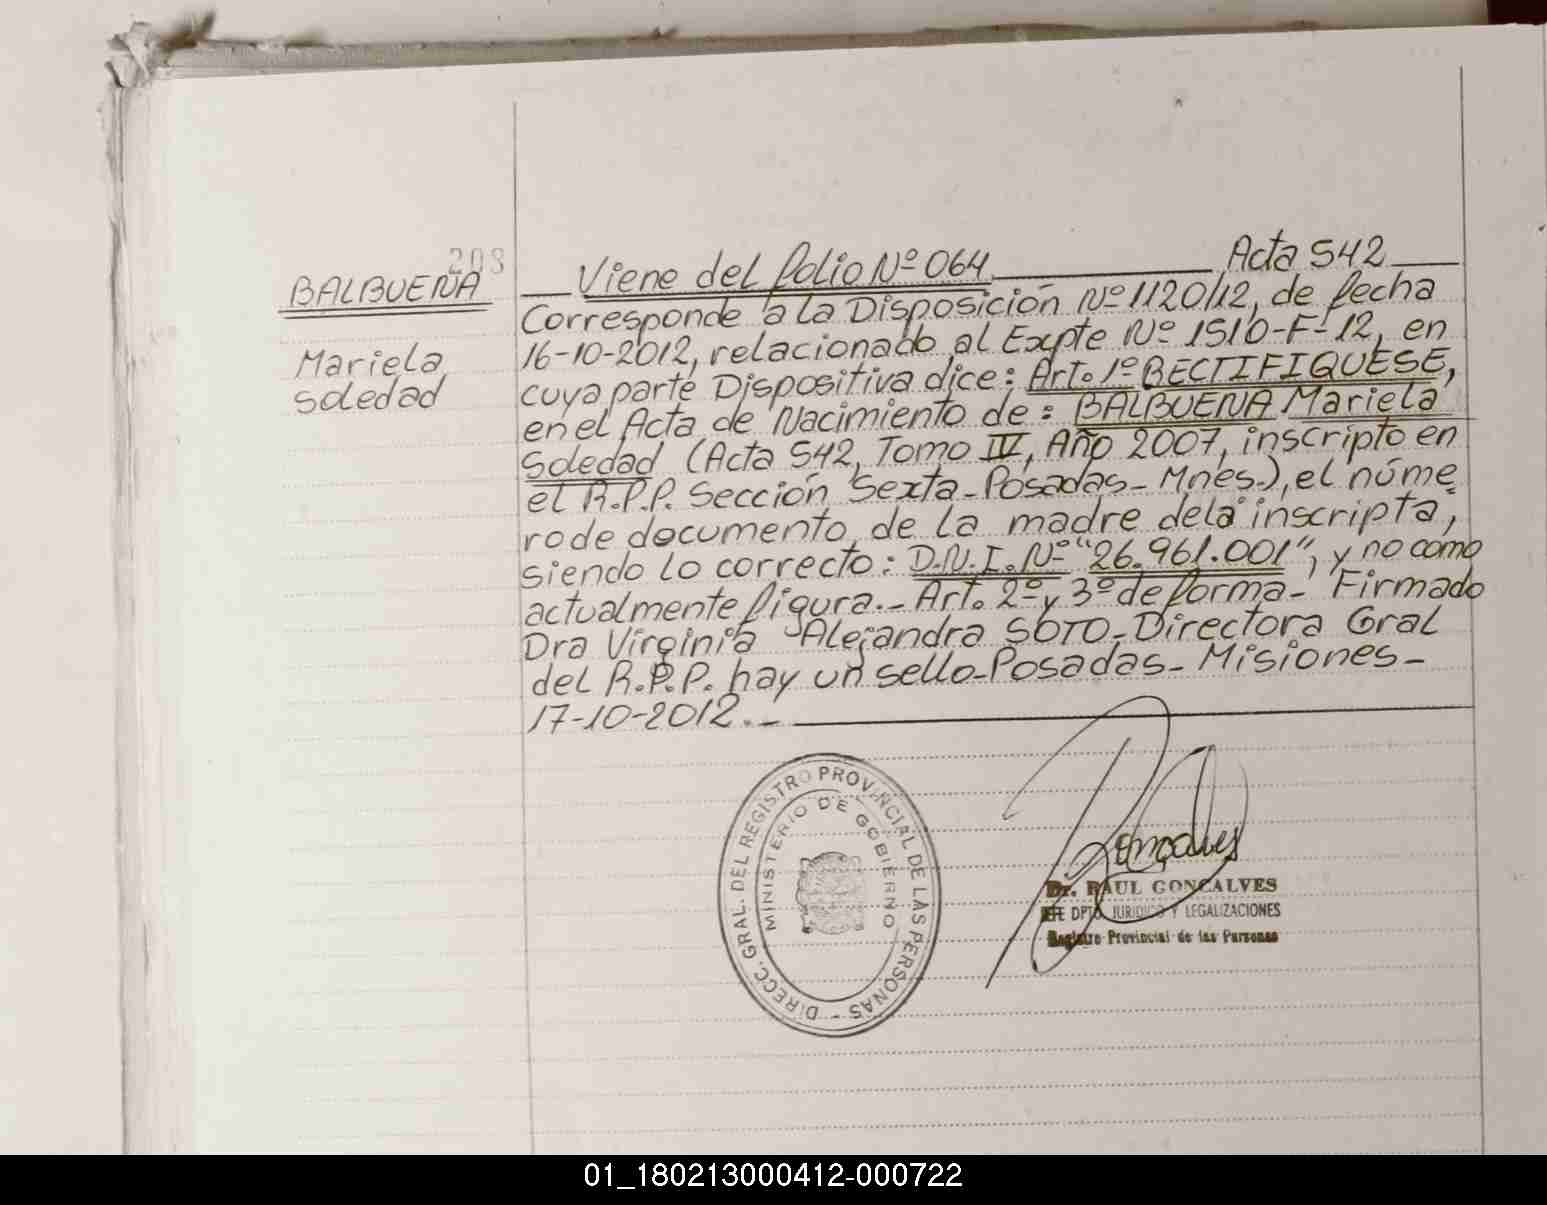 208
BALBUENA
Mariela
Soledad
Viene del folio Nº 064 Acta 542
Corresponde a la Disposición Nº 1120/12, de fecha
16-10-2012, relacionado al Expte Nº 1510-F-12, en
cuya parte Dispositiva dice: Art. 1º RECTIFIQUESE,
en el Acta de Nacimiento de: BALBUENA Mariela
Soledad (Acta 542, Tomo IV, Año 2007, inscripto en
el R.P.P. Sección Sexta - Posadas - Mnes.), el núme
ro de documento de la madre de la inscripta,
siendo lo correcto: D.N.I. Nº "26.961.001", y no como
actualmente figura.- Art. 2º y 3º de forma - Firmado
Dra Virginia Alejandra SOTO - Directora Gral
del R.P.P. hay un sello - Posadas - Misiones -
17-10-2012.-
DIRECC. GRAL. DEL REGISTRO PROVINCIAL DE LAS PERSONAS -
MINISTERIO DE GOBIERNO
Goncalves
Dr. RAUL GONCALVES
JEFE DPTO. JURIDICO Y LEGALIZACIONES
Registro Provincial de las Personas
01_180213000412-000722